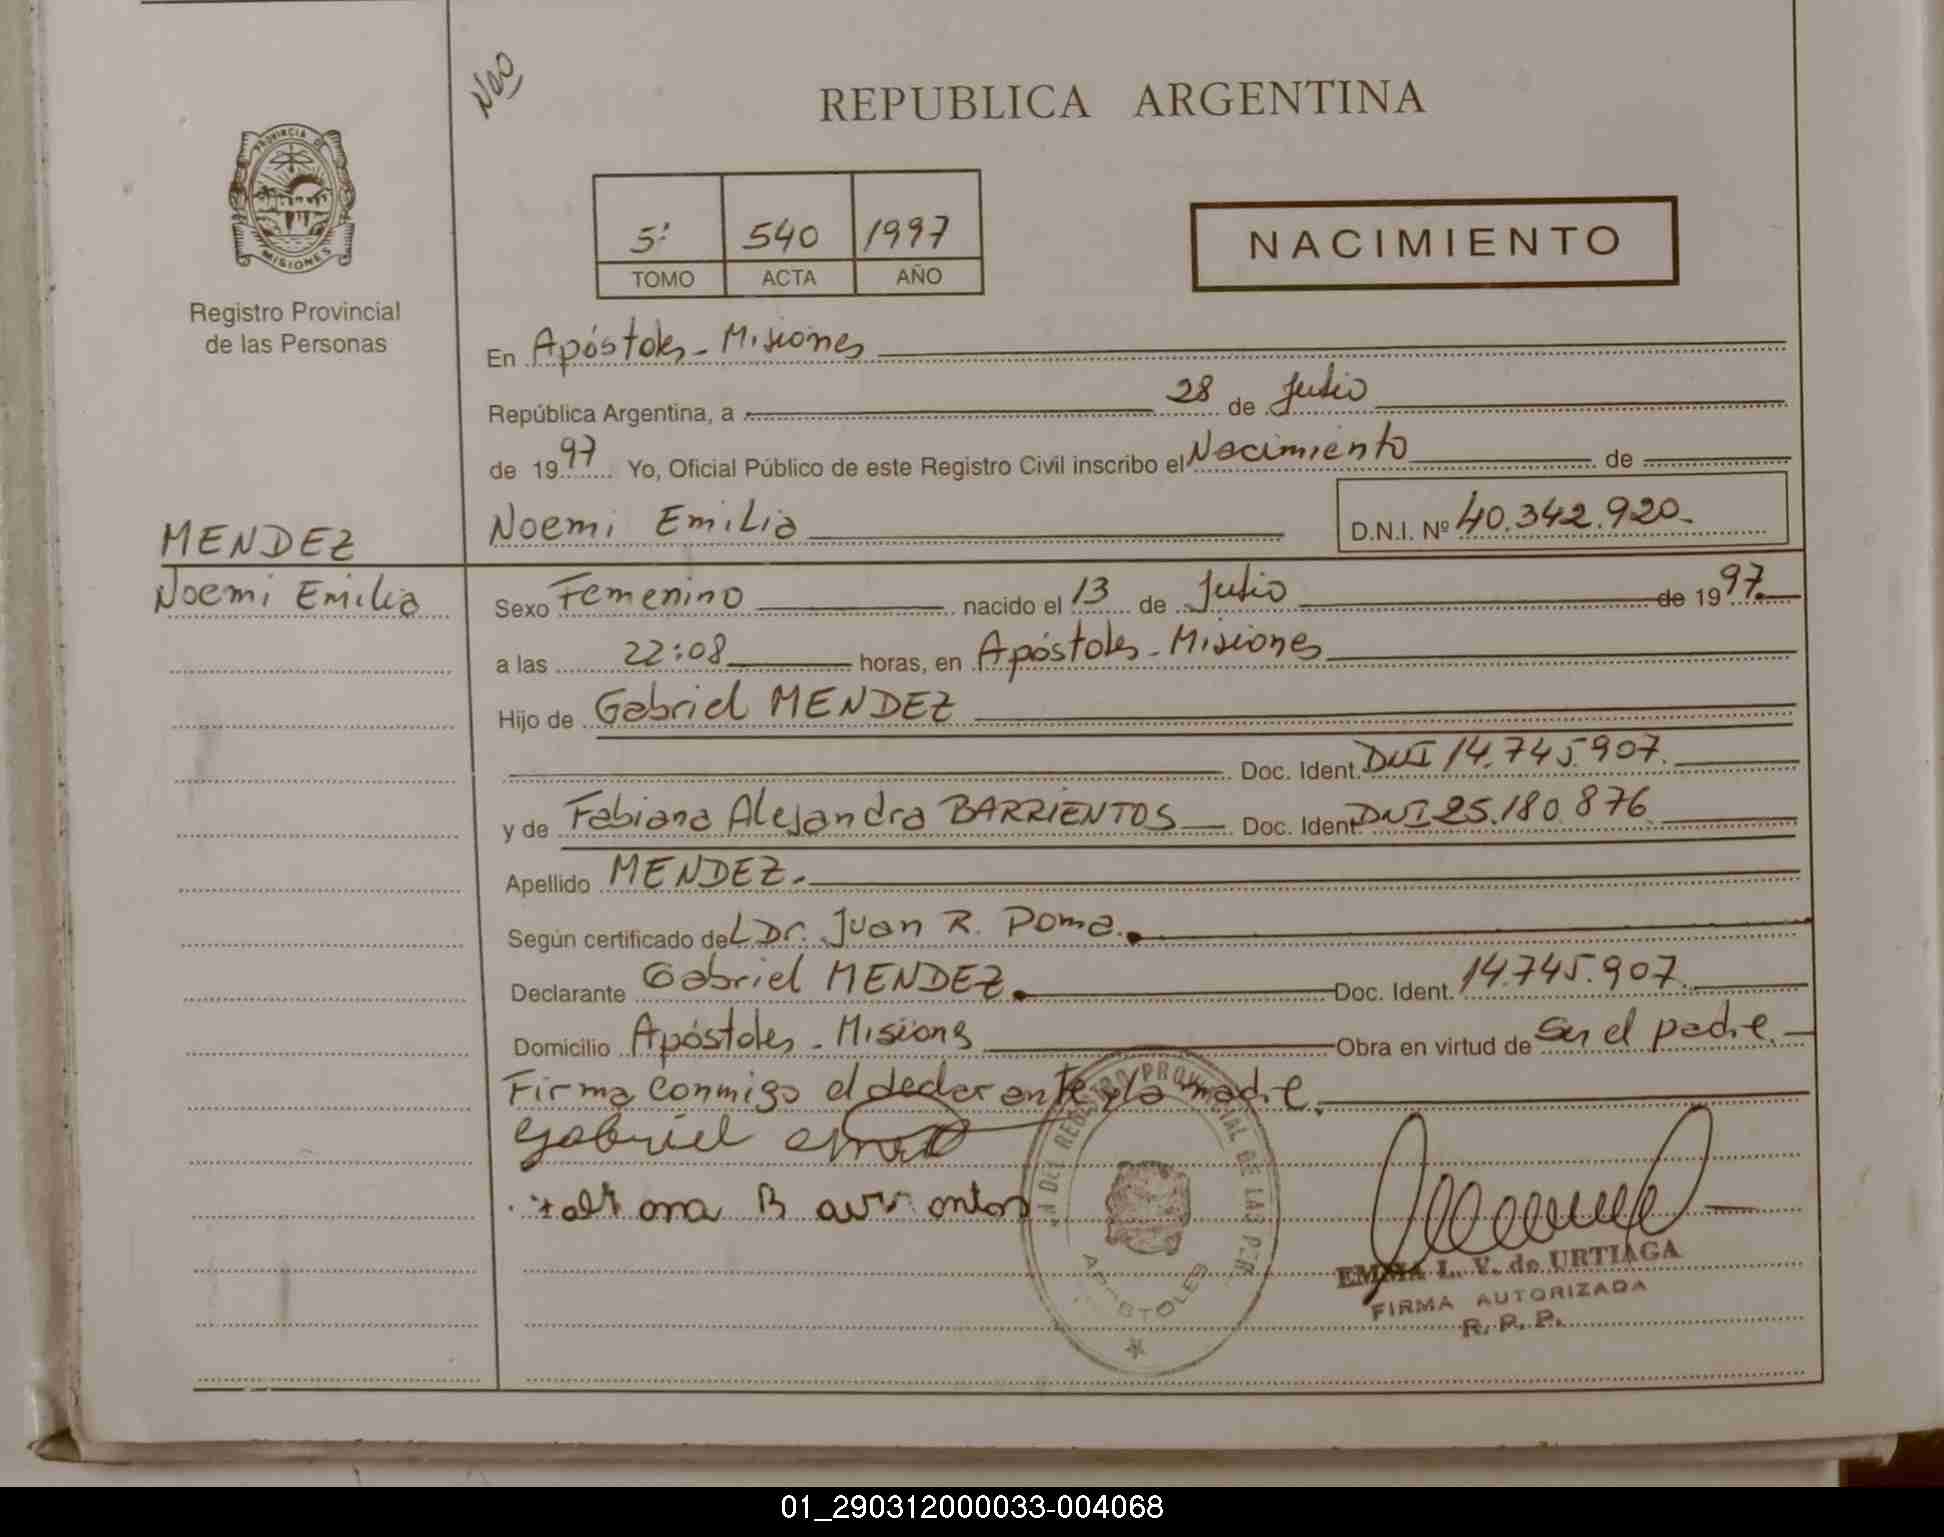 REPUBLICA ARGENTINA
PROVINCIA DE
MISIONES
Registro Provincial
de las Personas
5º 540 1997
TOMO ACTA AÑO
NACIMIENTO
En Apóstoles - Misiones
República Argentina, a 28 de Julio
de 1997 Yo, Oficial Público de este Registro Civil inscribo el Nacimiento de
Noemi Emilia D.N.I. Nº 40.342.920.-
MENDEZ
Noemi Emilia
Sexo Femenino nacido el 13 de Julio de 1997.
a las 22:08 horas, en Apóstoles - Misiones
Hijo de Gabriel MENDEZ
Doc. Ident. DNI 14.745.907.
y de Fabiana Alejandra BARRIENTOS Doc. Ident DNI 25.180.876
Apellido MENDEZ.
Según certificado del Dr. Juan R. Poma.
Declarante Gabriel MENDEZ. Doc. Ident. 14.745.907.
Domicilio Apóstoles - Misiones Obra en virtud de Ser el padre.
Firma conmigo el declarante y la madre.
Gabriel
Barrientos
REGISTRO PROVINCIAL DE LAS PER
APOSTOLES
EMMA L. V. de URTIAGA
FIRMA AUTORIZADA
R. P. P.
01_290312000033-004068